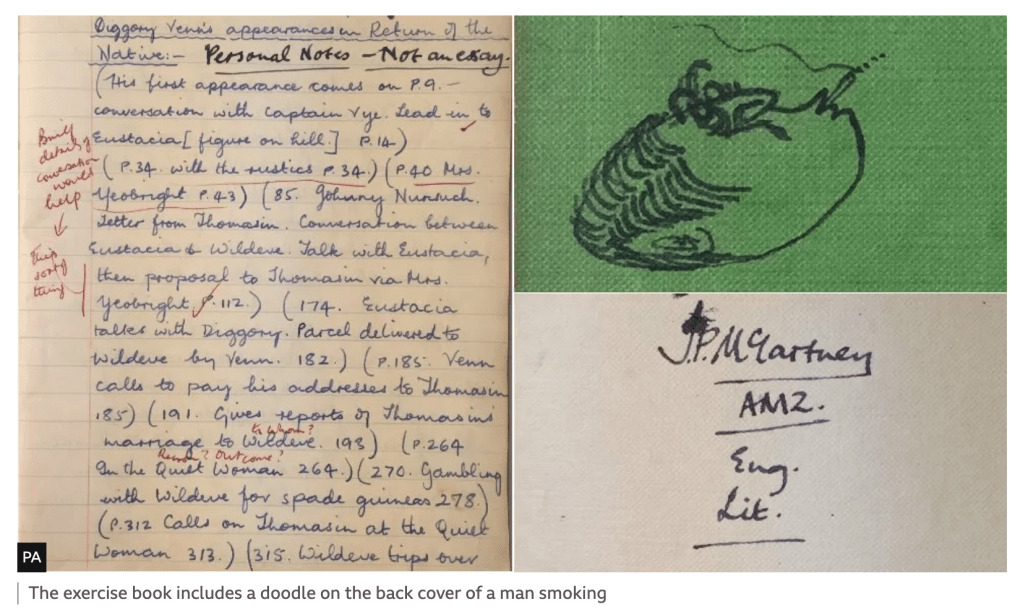 Diggory Venn's appearances in Return of the
Native:- Personal Notes - Not an essay.
(His first appearance comes on P.9.-
conversation with Captain Vye. Lead in to
Eustacia [figure on hill.] P.14)
(P.34. with the rustics P.34.) (P.40 Mrs.
Yeobright P.43) (85. Johnny Nunsuch.
Letter from Thomasin. Conversation between
Eustacia & Wildeve. Talk with Eustacia,
then proposal to Thomasin via Mrs.
Yeobright. P.112.) (174. Eustacia
talks with Diggory. Parcel delivered to
Wildeve by Venn. 182.) (P.185. Venn
calls to pay his addresses to Thomasin
185) (191. Gives reports of Thomasin's
to whom?
marriage to Wildeve. 193) (P.264
Reason? Outcome?
In the Quiet Woman 264.) (270. Gambling
with Wildeve for spade guineas 278.)
(P.312 Calls on Thomasin at the Quiet
Woman 313.) (315. Wildeve trips over
details of
conversation
would
help
This
sort of
thing
J.P. McCartney
AM2.
Eng.
Lit.
PA
The exercise book includes a doodle on the back cover of a man smoking